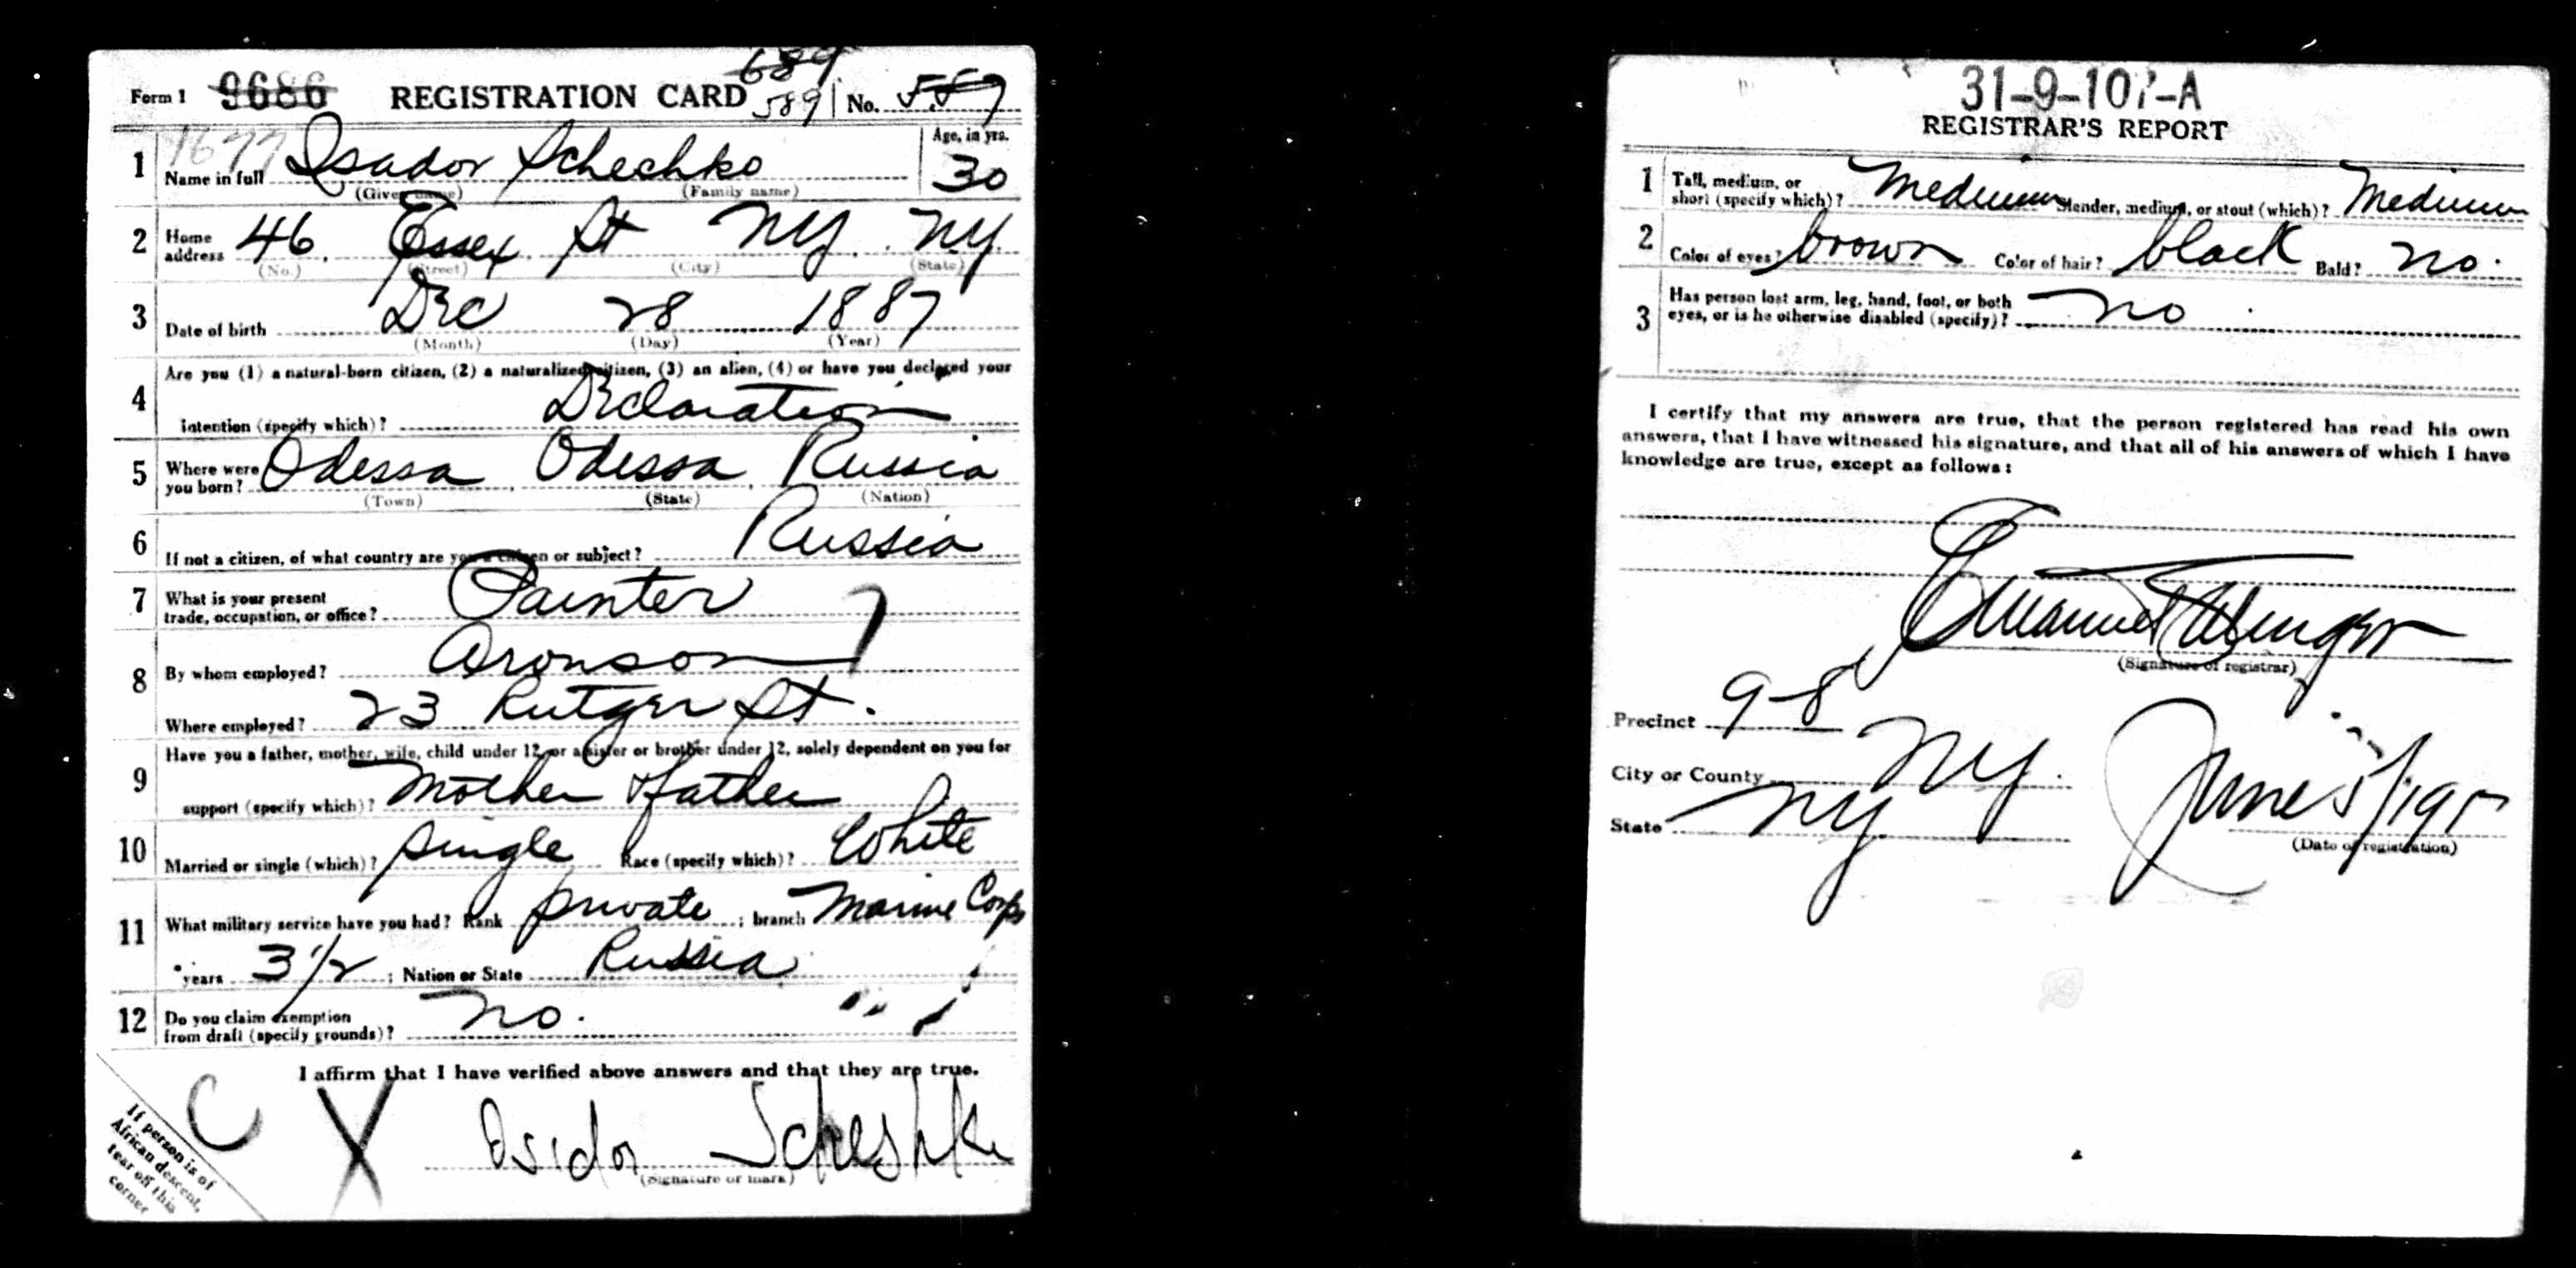 Form 1 9686 REGISTRATION CARD 689 589 No. 557
1677
1 Name in full Isador Schechko Age, in yrs. 30
(Given name) (Family name)
2 Home address 46 Essex St NY NY
(No.) (Street) (City) (State)
3 Date of birth Dec 28 1887
(Month) (Day) (Year)
4 Are you (1) a natural-born citizen, (2) a naturalized citizen, (3) an alien, (4) or have you declared your
intention (specify which)? Declaration
5 Where were you born? Odessa, Odessa, Russia
(Town) (State) (Nation)
6 If not a citizen, of what country are you a citizen or subject? Russia
7 What is your present
trade, occupation, or office? Painter
8 By whom employed? Aronson
Where employed? 23 Rutger St.
9 Have you a father, mother, wife, child under 12, or a sister or brother under 12, solely dependent on you for
support (specify which)? Mother & father
10 Married or single (which)? Single Race (specify which)? White
11 What military service have you had? Rank private ; branch Marine Corps
years 3 1/2 ; Nation or State Russia
12 Do you claim exemption
from draft (specify grounds)? No.
I affirm that I have verified above answers and that they are true.
C X Isidor Scheshko
(Signature or mark)
If person is of
African descent,
tear off this
corner
31-9-107-A
REGISTRAR'S REPORT
1 Tall, medium, or
short (specify which)? Medium Slender, medium, or stout (which)? Medium
2 Color of eyes? brown Color of hair? black Bald? no.
3 Has person lost arm, leg, hand, foot, or both
eyes, or is he otherwise disabled (specify)? no
I certify that my answers are true, that the person registered has read his own
answers, that I have witnessed his signature, and that all of his answers of which I have
knowledge are true, except as follows:
Emanuel
(Signature of registrar)
Precinct 9-8
City or County NY.
State NY June 5/1917
(Date of registration)